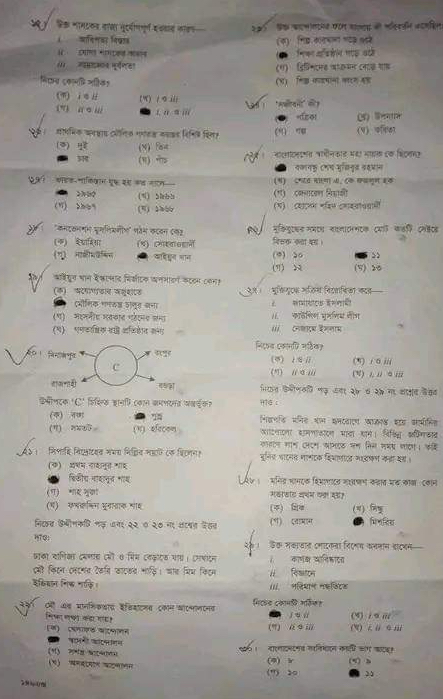 উক্ত শাসকের রাজ্য দুর্যোগপূর্ণ হওয়ার কারণ—
i. আধিপত্য বিস্তার
ii. যোগ্য শাসকের অভাব
iii. সাম্রাজ্যের দুর্বলতা
নিচের কোনটি সঠিক?
(ক) i ও ii
(খ) i ও iii
(গ) ii ও iii
i, ii ও iii
প্রাথমিক অবস্থায় মৌলিক গণতন্ত্র কয়স্তর বিশিষ্ট ছিল?
(ক) দুই
(খ) তিন
চার
(ঘ) পাঁচ
ভারত-পাকিস্তান যুদ্ধ হয় কত সালে—
১৯৬৫
(গ) ১৯৬৭
'কনভেনশন মুসলিমলীগ' গঠন করেন কে?
(ক) ইয়াহিয়া
(খ) সোহরাওয়ার্দী
(গ) নাজীমউদ্দিন
আইয়ুব খান
১৯। আইয়ুব খান ইস্কান্দার মির্জাকে অপসারণ করেন কেন?
(ক) অযোগ্যতার অজুহাতে
মৌলিক গণতন্ত্র চালুর জন্য
(গ) সংসদীয় সরকার গঠনের জন্য
(ঘ) গণতান্ত্রিক রাষ্ট্র প্রতিষ্ঠার জন্য
২০। দিনাজপুর
রংপুর
C
রাজশাহী
বগুড়া
উদ্দীপকে 'C' চিহ্নিত স্থানটি কোন জনপদের অন্তর্ভুক্ত?
(ক) বঙ্গ
পুণ্ড্র
(গ) সমতট
(ঘ) হরিকেল
২১। সিপাহি বিদ্রোহের সময় দিল্লির সম্রাট কে ছিলেন?
(ক) প্রথম বাহাদুর শাহ
দ্বিতীয় বাহাদুর শাহ
(গ) শাহ সুজা
(ঘ) ফখরুদ্দিন মুবারক শাহ
নিচের উদ্দীপকটি পড় এবং ২২ ও ২৩ নং প্রশ্নের উত্তর
দাও:
ঢাকা বাণিজ্য মেলায় মৌ ও মিম বেড়াতে যায়। সেখানে
মৌ কিনে দেশের তৈরি তাতের শাড়ি। আর মিম কিনে
ইন্ডিয়ান শিল্ক শাড়ি।
২২। মৌ এর মানসিকতায় ইতিহাসের কোন আন্দোলনের
শিক্ষা লক্ষ্য করা যায়?
(ক) খেলাফত আন্দোলন
স্বদেশী আন্দোলন
(গ) সশস্ত্র আন্দোলন
(ঘ) অসহযোগ আন্দোলন
২৩। উক্ত আন্দোলনের ফলে বাংলায় কী পরিবর্তন এসেছিল
(ক) শিল্প কারখানা গড়ে ওঠে
শিক্ষা প্রতিষ্ঠান গড়ে ওঠে
(গ) ব্রিটিশদের আক্রমন বেড়ে যায়
(ঘ) শিল্প কারখানা ধ্বংস হয়
২৪। 'সঞ্জীবনী' কী?
পত্রিকা
(খ) উপন্যাস
(গ) গল্প
(ঘ) কবিতা
২৫। বাংলাদেশের স্বাধীনতার মহা নায়ক কে ছিলেন?
বঙ্গবন্ধু শেখ মুজিবুর রহমান
(খ) শেরে বাংলা এ, কে ফজলুল হক
(গ) জেনারেল নিয়াজী
(ঘ) হোসেন শহিদ সোহরাওয়ার্দী
মুক্তিযুদ্ধের সময়ে বাংলাদেশকে মোট কতটি সেক্টরে
বিভক্ত করা হয়।
(ক) ১০
১১
(গ) ১২
(ঘ) ১৩
২৭। মুক্তিযুদ্ধে সক্রিয় বিরোধিতা করে—
i. জামায়াতে ইসলামী
ii. কাউন্সিল মুসলিম লীগ
iii. নেজামে ইসলাম
নিচের কোনটি সঠিক?
(ক) i ও ii
(খ) i ও iii
(গ) ii ও iii
(ঘ) i, ii ও iii
নিচের উদ্দীপকটি পড় এবং ২৮ ও ২৯ নং প্রশ্নের উত্তর
দাও:
শিল্পপতি মনির খান হৃদরোগে আক্রান্ত হয়ে জার্মানির
হাসপাতালে মারা যান। বিভিন্ন জটিলতার
কারণে লাশ দেশে আনতে দশ দিন সময় লাগে। তাই
মুনির খানের লাশকে হিমাগারে সংরক্ষণ করা হয়।
২৮। মনির খানকে হিমাগারে সংরক্ষণ করার মত কাজ কোন
সভ্যতায় প্রথম শুরু হয়?
(ক) গ্রিক
(খ) সিন্ধু
(গ) রোমান
মিশরিয়
২৯। উক্ত সভ্যতার লোকেরা বিশেষ অবদান রাখেন—
i. কাগজ আবিষ্কারে
ii. বিজ্ঞানে
iii. পরিমাপ পদ্ধতিতে
নিচের কোনটি সঠিক?
i ও ii
(খ) i ও iii
(গ) ii ও iii
(ঘ) i, ii ও iii
৩০। বাংলাদেশের সংবিধানে কয়টি ভাগ আছে?
(ক) ৮
(খ) ৯
(গ) ১০
১১